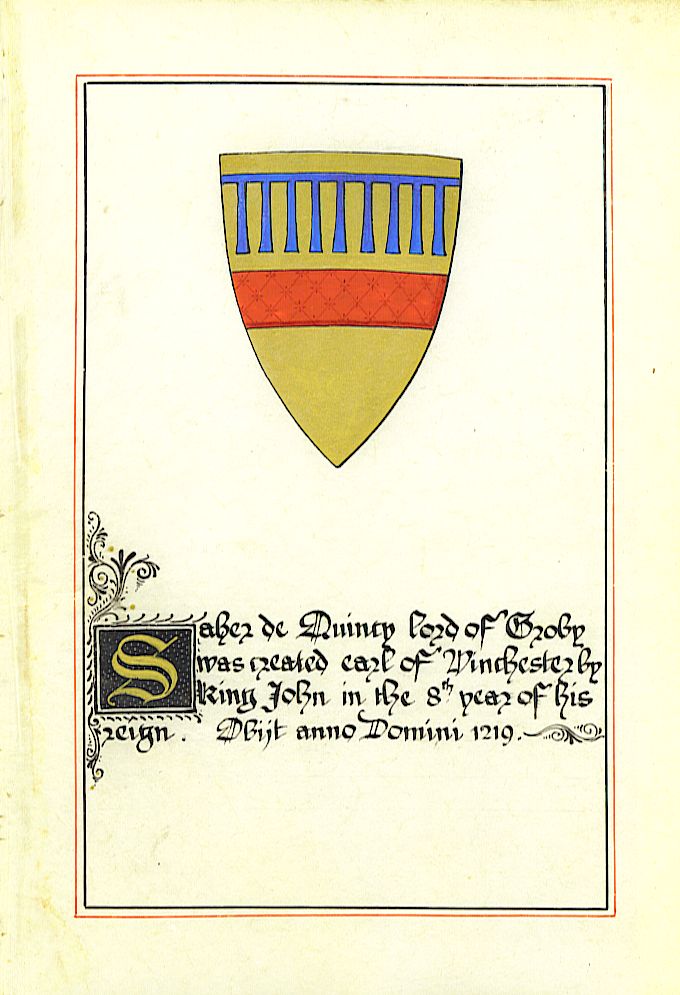 Saher de Quincy lord of Groby
was created earl of Winchester by
King John in the 8th year of his
reign. Obijt anno Domini 1219.